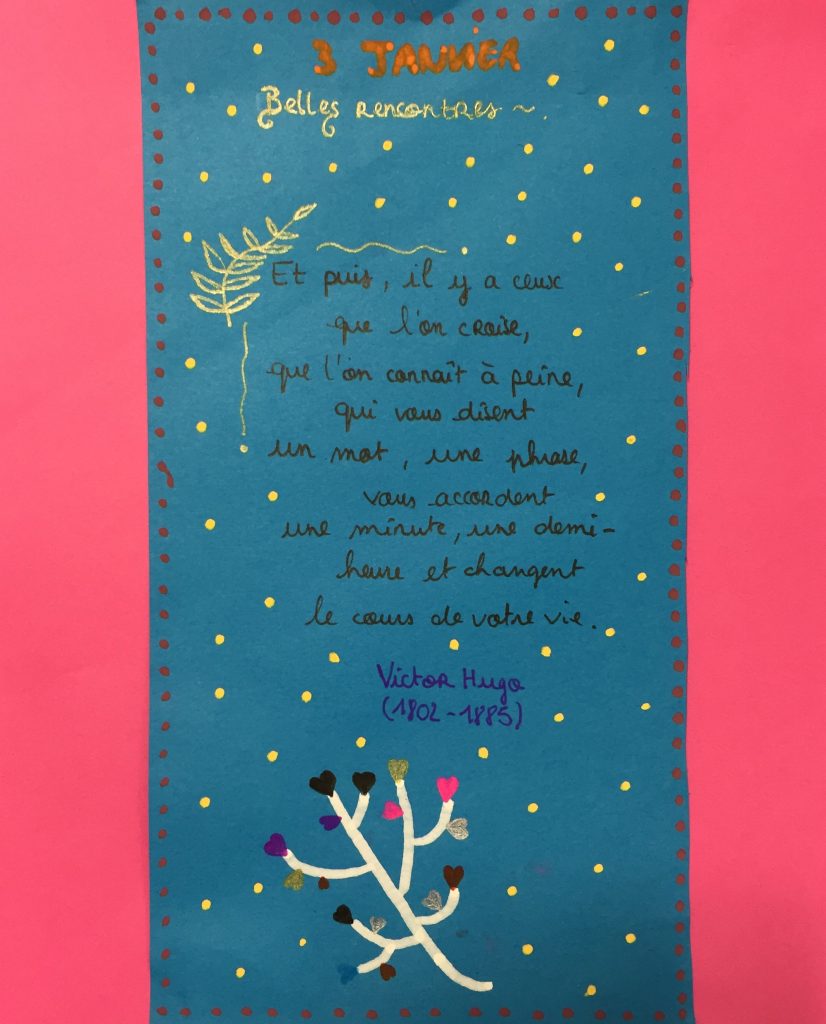 3 JANVIER
Belles rencontres ~.
Et puis, il y a ceux
que l'on croise,
que l'on connaît à peine,
qui vous disent
un mot, une phrase,
vous accordent
une minute, une demi-
heure et changent
le cours de votre vie.
Victor Hugo
(1802-1885)